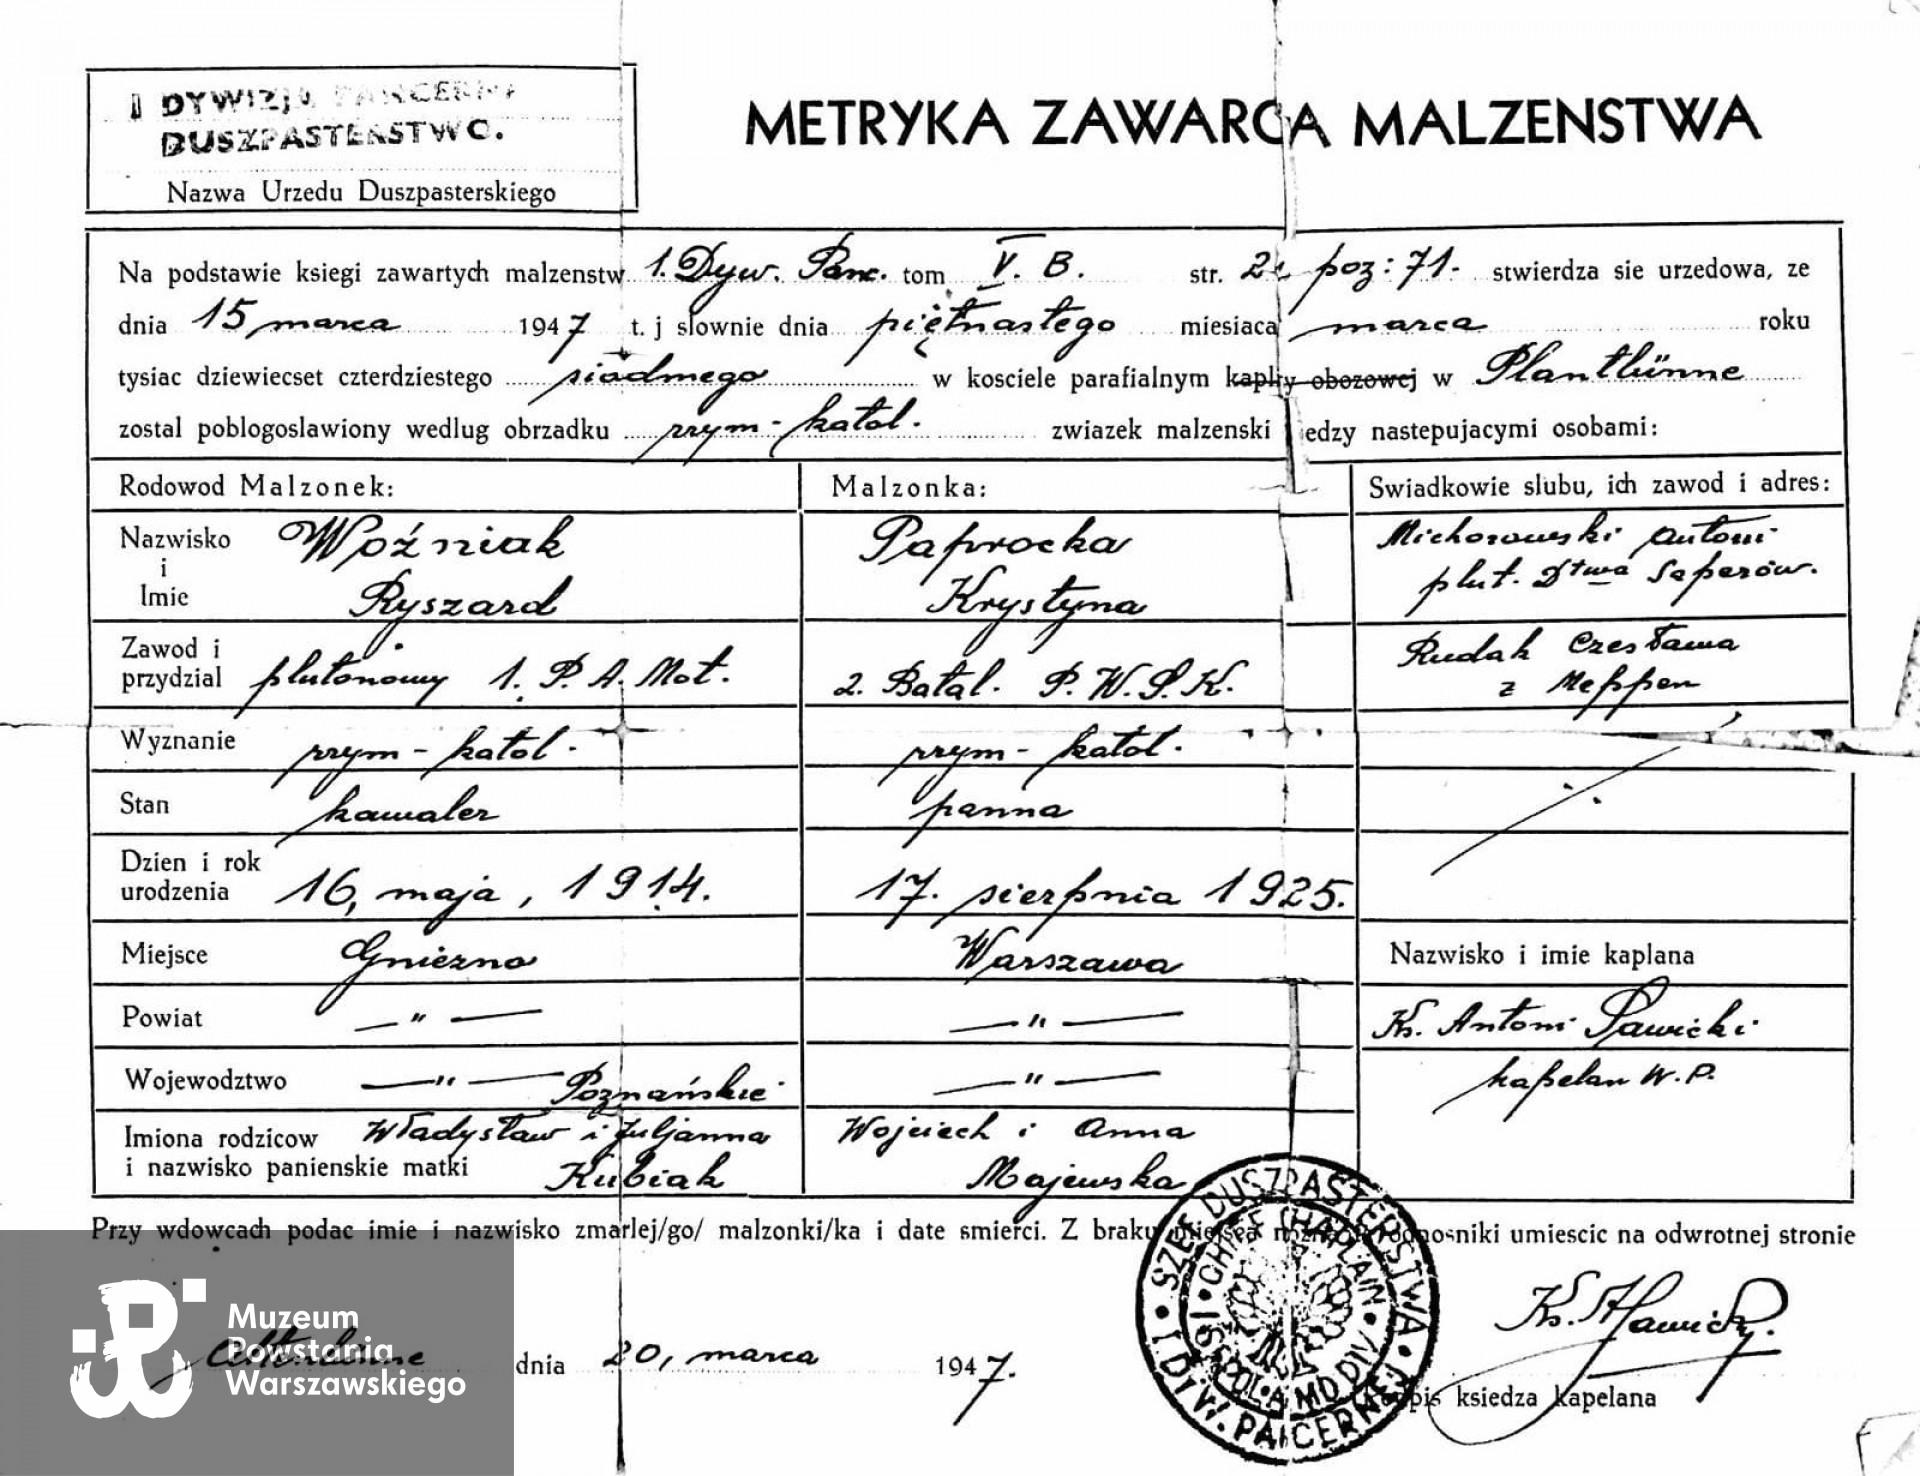 I DYWIZJA PANCERNA
DUSZPASTERSTWO.
Nazwa Urzedu Duszpasterskiego
METRYKA ZAWARCA MALZENSTWA
Na podstawie ksiegi zawartych malzenstw 1. Dyw. Panc. tom V. B. str. poz: 71. stwierdza sie urzedowa, ze
dnia 15, marca 1947 t. j slownie dnia piętnastego miesiaca marca roku
tysiac dziewiecset czterdziestego siódmego w kosciele parafialnym kaplicy obozowej w Plantlünne
zostal poblogoslawiony wedlug obrzadku rzym-katol. zwiazek malzenski iedzy nastepujacymi osobami:
Rodowod Malzonek: Malzonka: Swiadkowie slubu, ich zawod i adres:
Nazwisko i Imie Woźniak Ryszard Paprocka Krystyna Michorowski Antoni plut. Dtwa Saperów.
Zawod i przydzial plutonowy 1. P. A. Mot. 2. Batal. P. W. S. K. Rudak Czesława z Meppen
Wyznanie rzym-katol. rzym-katol.
Stan kawaler panna
Dzien i rok urodzenia 16, maja, 1914. 17. sierpnia 1925.
Miejsce Gniezno Warszawa Nazwisko i imie kaplana
Powiat — " — — " — Ks. Antoni Sawicki
Wojewodztwo — " — Poznańskie — " — kapelan W. P.
Imiona rodzicow i nazwisko panienskie matki Władysław i Juljanna Kubiak Wojciech i Anna Majewska
Przy wdowcach podac imie i nazwisko zmarlej/go/ malzonki/ka i date smierci. Z braku miejsca mozna odnosniki umiescic na odwrotnej stronie
dnia 20, marca 1947.
SZEF DUSZPASTERSTWA • I DTW. PANCERNEJ •
CHIEF CHAPLAIN • 1 POL. ARMD DIV •
Ks. A Sawicki.
podpis ksiedza kapelana
Muzeum
Powstania
Warszawskiego